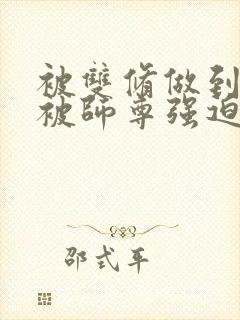 被雙脩做到
被師尊强迫
邵式平